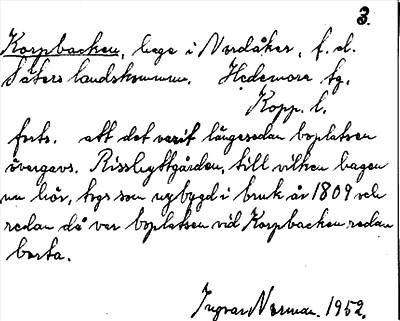 3.
Korpbacken, hage i Nordåker, f. d.
Säters landskommun. Hedemora tg.
Kopp. l.
forts. att det varit längesedan boplatsen
övergavs. Rissbyttgården, till vilken hagen
nu hör, togs som nybygd i bruk år 1809 och
redan då var boplatsen vid Korpbacken redan
borta.
Ingvar Norman. 1952.